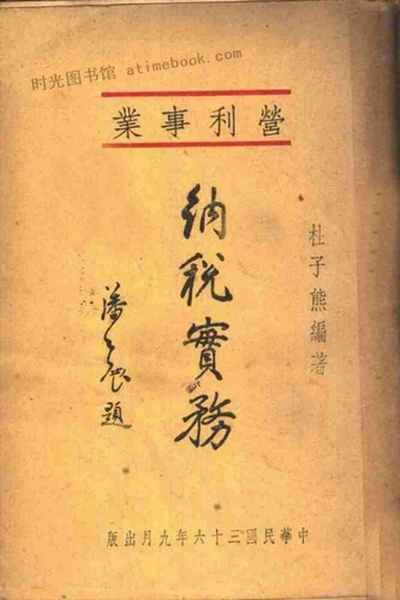 时光图书馆 atimebook.com
營利事業
杜子熊編著
納稅實務
潘公展題
中華民國三十六年九月出版